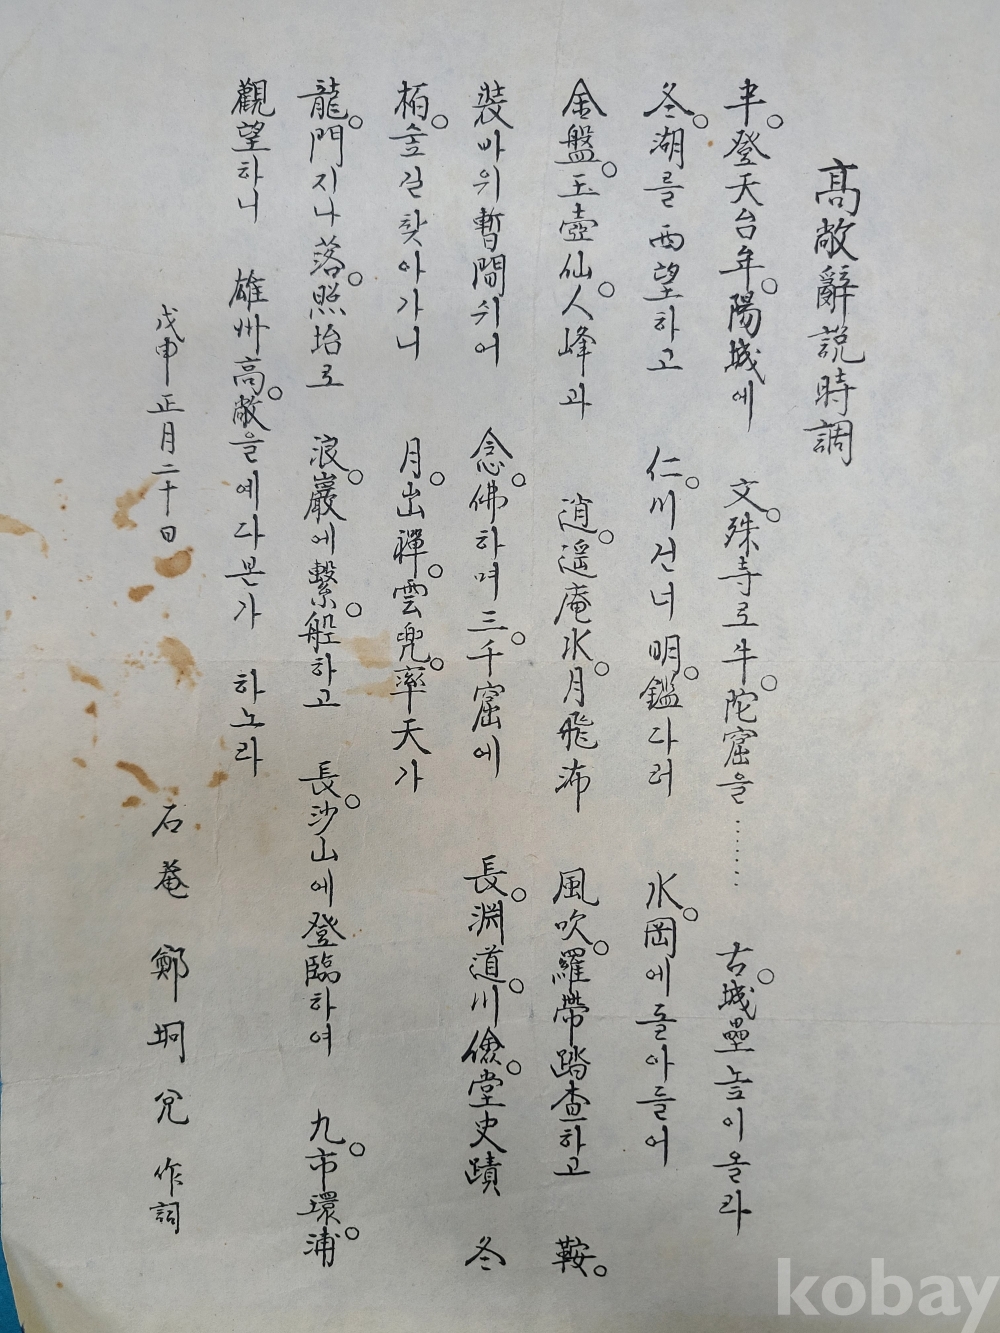 高敞辭說時調
半登天台牟陽城에 文殊寺로 牛陀窟을…… 古城壘높이올라
冬湖를西望하고 仁川건너 明鑑다러 水岡에돌아들어
金盤玉壺仙人峰과 逍遥庵水月飛沛 風吹羅帶踏査하고 鞍
裝바위暫間쉬어 念佛하며三千窟에 長淵道川儉堂史蹟 冬
栢숲길찾아가니 月出禪雲兜率天가
龍門지나落照坮로 浪巖에繫船하고 長沙山에登臨하여 九市環浦
觀望하니 雄州高敞을예다본가 하노라
戊申正月二十日
石菴 鄭坰兌 作詞
kobay